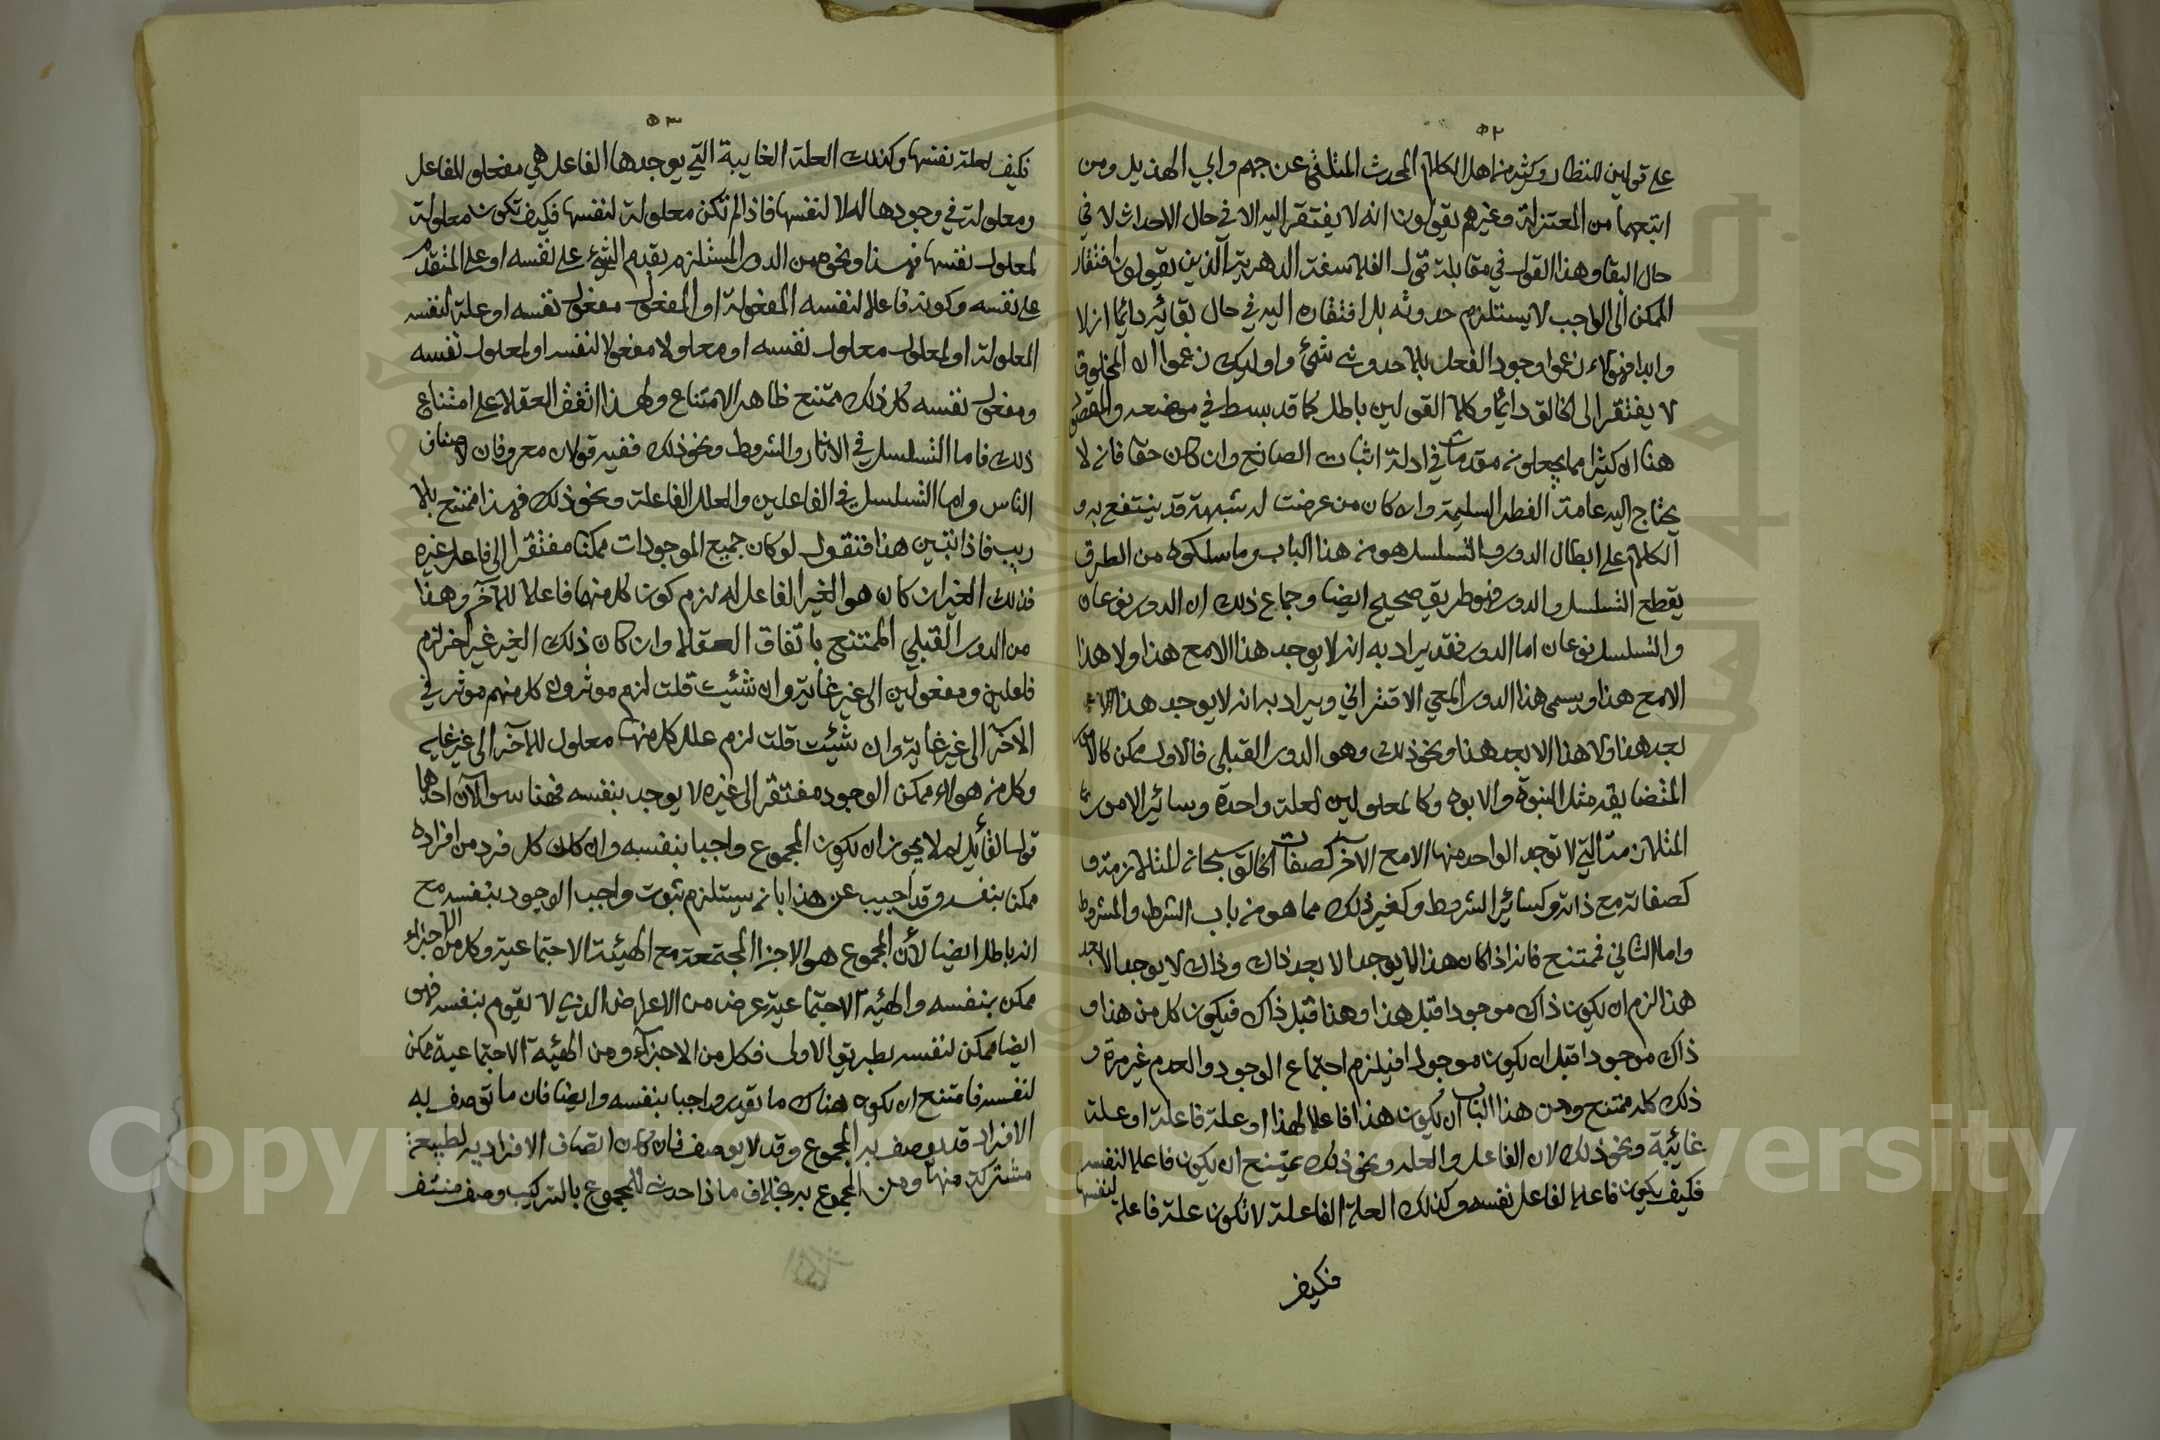 ٥٢
على قولين للنظار وكثير من اهل الكلام المحدث المتلقى عن جهم وابي الهذيل ومن
اتبعهما من المعتزلة وغيرهم يقولون انه لا يفتقر اليه الا في حال الاحداث لا في
حال البقا وهذا القول في مقابلة قول الفلاسفة الدهرية الذين يقولون افتقار
الممكن الى الواجب لا يستلزم حدوثه بل افتقاره اليه في حال بقائه دائما ازلا
وابدا فهؤلاء زعموا وجود الفعل بلا حدوث شئ واولئك زعموا ان المخلوق
لا يفتقر الى الخالق دائما وكلا القولين باطل كما قد بسط في موضعه والمقصود
هنا ان كثيرا مما يجعلونه مقدمات في ادلة اثبات الصانع وان كان حقا فانه لا
يحتاج اليه عامة الفطر السليمة وان كان من عرضت له شبهة قد ينتفع به و
الكلام على ابطال الدور والتسلسل هو من هذا الباب وما سلكوه من الطرق
يقطع التسلسل والدور فهو طريق صحيح ايضا وجماع ذلك ان الدور نوعان
والتسلسل نوعان اما الدور فقد يراد به انه لا يوجد هذا الا مع هذا ولا هذا
الا مع هذا ويسمى هذا الدور المعي الاقتراني ويراد به انه لا يوجد هذا الا
بعد هذا ولا هذا الا بعد هذا ونحو ذلك وهو الدور القبلي فالاول ممكن كالامور
المتضايفة مثل البنوة والابوه وكالمعلولين لعلة واحدة وسائر الامور
المتلازمة التي لا توجد الواحد منها الا مع الآخر كصفات الخالق سبحانه المتلازمة و
كصفاته مع ذاته وكسائر الشروط وكغير ذلك مما هو من باب الشرط والمشروط
واما الثاني فممتنع فانه اذا كان هذا لا يوجد الا بعد ذاك وذاك لا يوجد الا بعد
هذا لزم ان يكون ذاك موجودا قبل هذا وهذا قبل ذاك فيكون كل من هذا و
ذاك موجودا قبل ان يكون موجودا فيلزم اجتماع الوجود والعدم غير مرة و
ذلك كله ممتنع ومن هذا الباب ان يكون هذا فاعلا لهذا او علة فاعلة او علة
غائية ونحو ذلك لان الفاعل والعلة ونحو ذلك يمتنع ان يكون فاعلا لنفسه
فكيف يكون فاعلا لفاعل نفسه وكذلك العلة الفاعلة لا تكون علة فاعلة لنفسها
فكيف
٥٣
فكيف لعلة نفسها وكذلك العلة الغايية التي يوجدها الفاعل هي مفعولة للفاعل
ومعلولة في وجودها له لا لنفسها فاذا لم تكن معلولة لنفسها فكيف تكون معلولة
لمعلول نفسها فهذا ونحوه من الدور المستلزم تقدم الشئ على نفسه او على المتقدم
على نفسه وكونه فاعلا لنفسه المفعولة او المفعول مفعول نفسه او علة لنفسه
المعلولة او لمعلول معلول نفسه او معلولا مفعولا لنفسه او لمعلول نفسه
ومفعول نفسه كل ذلك ممتنع ظاهر الامتناع ولهذا اتفق العقلا على امتناع
ذلك فاما التسلسل في الاثار والشروط ونحو ذلك ففيه قولان معروفان لاصناف
الناس واما التسلسل في الفاعلين والعلل الفاعلة ونحو ذلك فهذا ممتنع بلا
ريب فاذا تبين هذا فنقول لو كان جميع الموجودات ممكنا مفتقرا الى فاعل غيره
فذلك الغير ان كان هو الغير الفاعل له لزم كون كل منهما فاعلا للآخر وهذا
من الدور القبلي الممتنع باتفاق العقلا وان كان ذلك الغير غير آخر لزم
فاعلين ومفعولين الى غير غاية وان شئت قلت لزم موثرون كل منهم موثر في
الآخر الى غير غاية وان شئت قلت لزم علل كل منها معلول للآخر الى غير غاية
وكل من هولاء ممكن الوجود مفتقر الى غيره لا يوجد بنفسه فهنا سوالان احدها
قول القائل لم لا يجوز ان يكون المجموع واجبا بنفسه وان كان كل فرد من افراده
ممكنا بنفسه وقد اجيب عن هذا بانه يستلزم ثبوت واجب الوجود بنفسه مع
انه باطل ايضا لأن المجموع هو الاجزا المجتمعة مع الهيئة الاجتماعية وكل من الاجزاء
ممكن بنفسه والهيئة الاجتماعية عرض من الاعراض الذي لا يقوم بنفسه فهو
ايضا ممكن لنفسه بطريق الاولى فكل من الاجزآء ومن الهيئة الاجتماعية ممكن
لنفسه فامتنع ان يكون هناك ما يقدر واجبا بنفسه وايضا فان ما توصف به
الافراد قد يوصف به المجموع وقد لا يوصف فان كان اتصاف الافراد به لطبيعة
مشتركة منها ومن المجموع به بخلاف ماذا حدث للمجموع بالتركيب وصف منتف
Copyright © King University